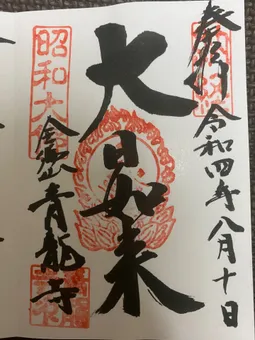 奉拝
令和四年八月十日
大日如来
昭和大佛
青龍寺